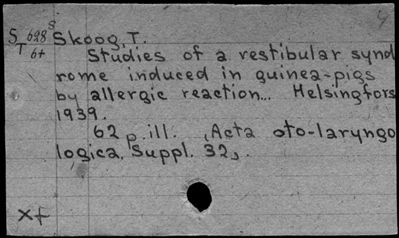 S 628 s Skoog, T.
T 6t
Studies of a vestibular synd
rome induced in guinea-pigs
by allergic reaction... Helsingfors
1939.
62 p. ill. (Acta oto-laryngo
logica. Suppl. 32).
xf